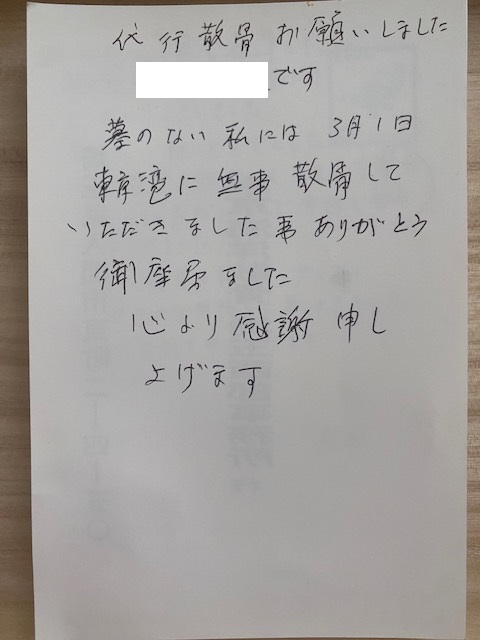 代行散骨お願いしました
です
墓のない私には 3月1日
東京湾に無事 散骨して
いただきました事ありがとう
御座居ました
心より感謝申し
上げます